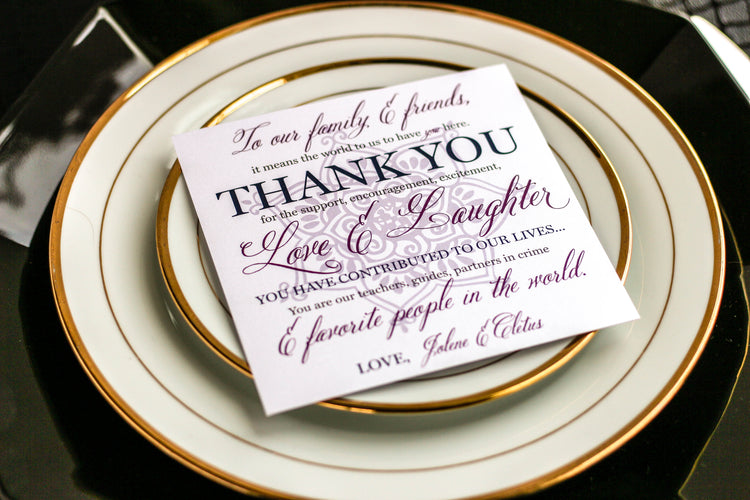 To our family, & friends,
it means the world to us to have you here.
THANK YOU
for the support, encouragement, excitement,
Love & Laughter
YOU HAVE CONTRIBUTED TO OUR LIVES...
You are our teachers, guides, partners in crime
& favorite people in the world.
LOVE, Jolene & Cletus